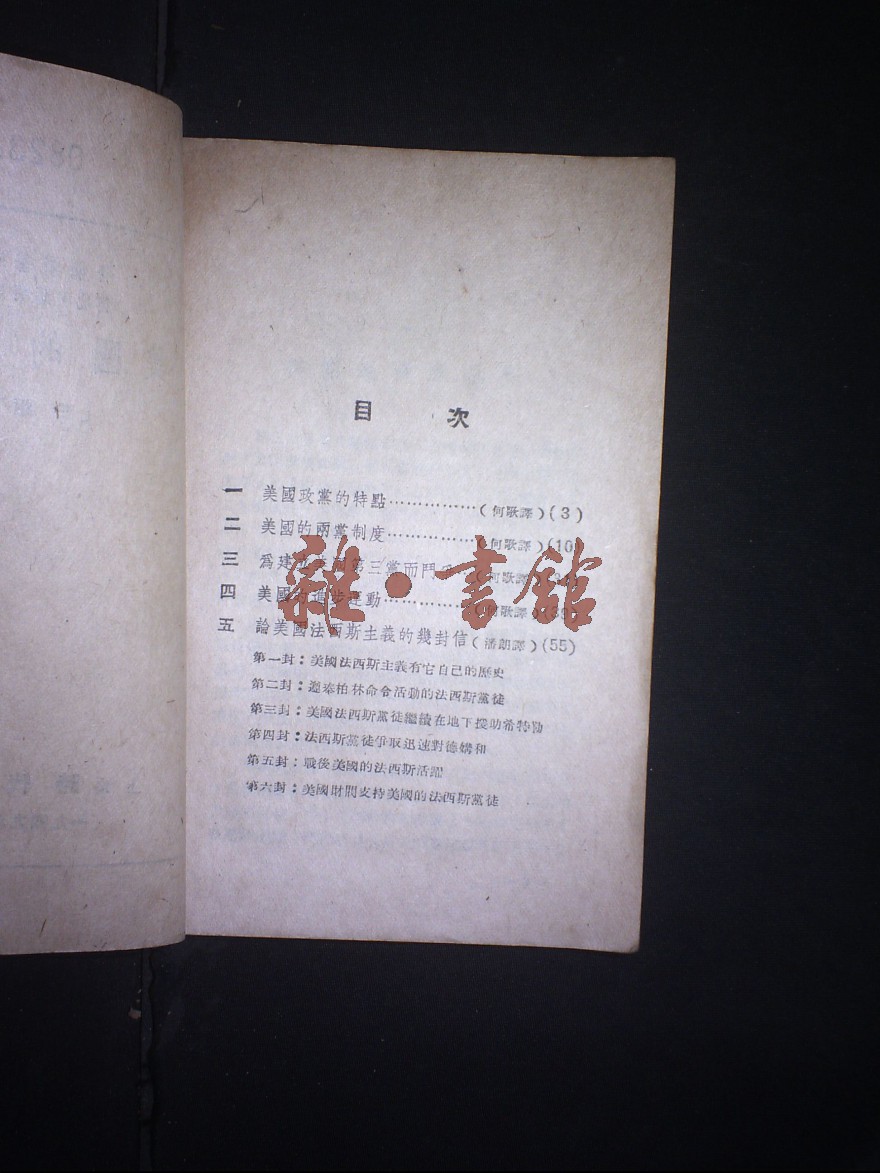 目　次
一　美國政黨的特點………………(何歌譯)(3)
二　美國的兩黨制度………………(何歌譯)(10)
三　爲建立美國第三黨而鬥 (何歌譯)
四　美國的進步運動………………(何歌譯)
五　論美國法西斯主義的幾封信(潘朗譯)(55)
第一封：美國法西斯主義有它自己的歷史
第二封：遵奉柏林命令活動的法西斯黨徒
第三封：美國法西斯黨徒繼續在地下援助希特勒
第四封：法西斯黨徒爭取迅速對德媾和
第五封：戰後美國的法西斯活躍
第六封：美國財閥支持美國的法西斯黨徒
雜·書館